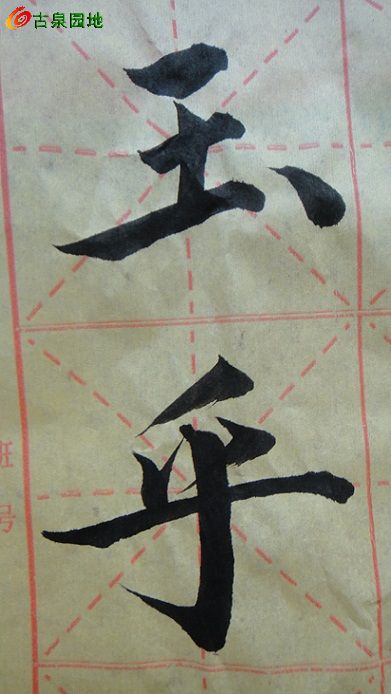 古泉园地
玉
乎
班
号